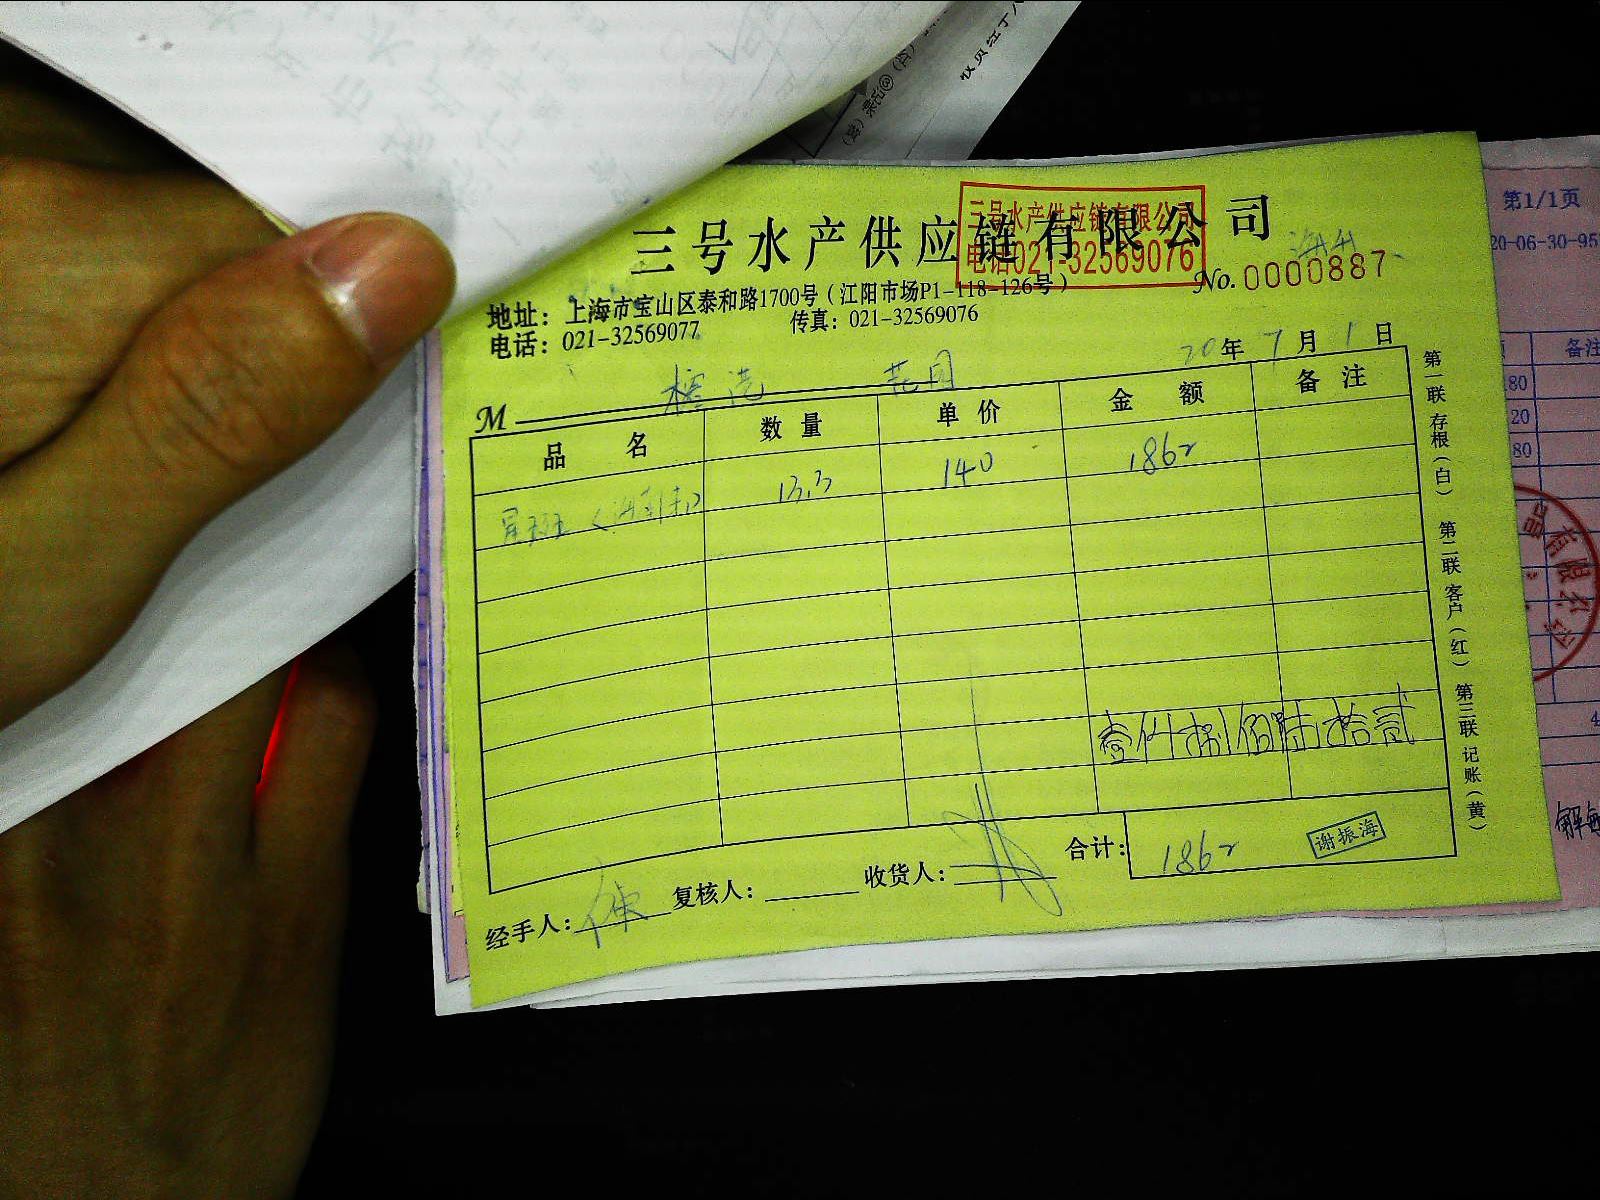 三号水产供应链有限公司
三号水产供应链有限公司
电话021-32569076
No.0000887
地址：上海市宝山区泰和路1700号（江阳市场P1-118-126号）
电话：021-32569077 传真：021-32569076
20年7月1日
M 花园
品名 数量 单价 金额 备注
星斑 13.3 140 1862
壹仟捌佰陆拾贰
合计：1862
谢振海
经手人： 复核人： 收货人：
第一联 存根（白） 第二联 客户（红） 第三联 记账（黄）
第1/1页
20-06-30-95
备注
80
20
80
有限公